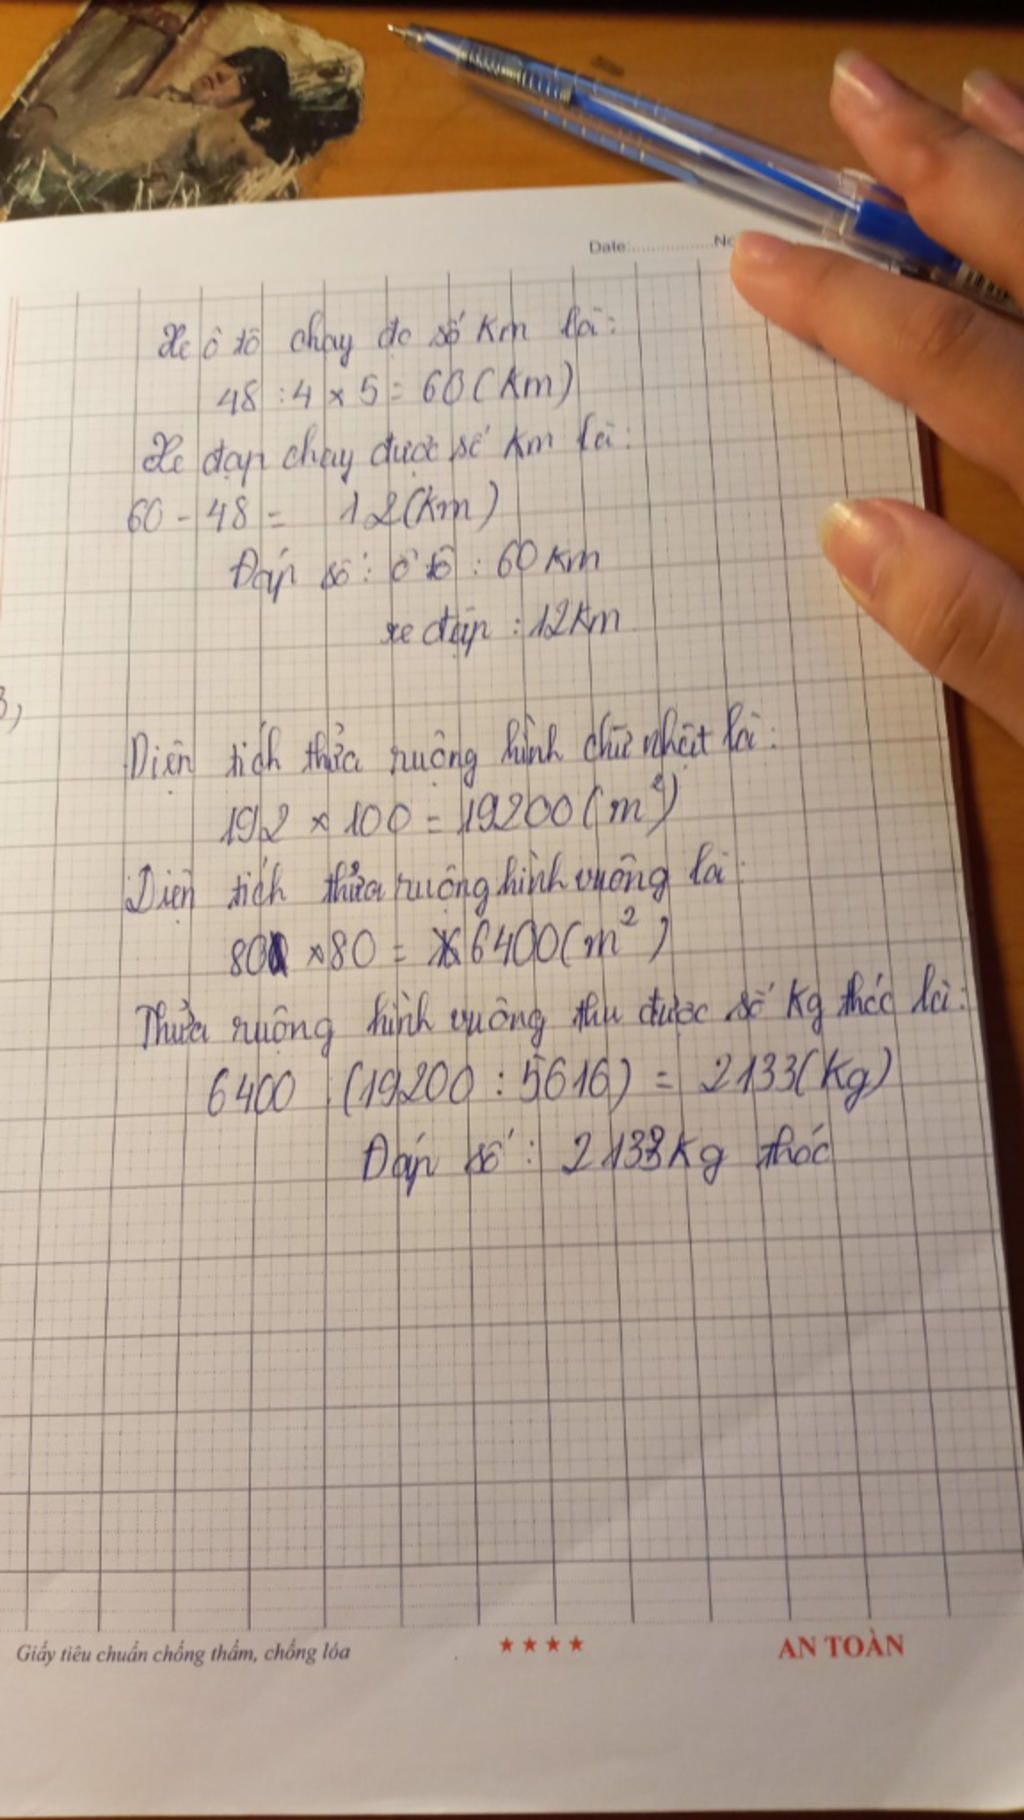 Date:..................No
Xe ô tô chạy đc số km là:
48 : 4 x 5 = 60 (km)
Xe đạp chạy được số km là:
60 - 48 = 12 (km)
Đáp số : ô tô : 60 km
xe đạp : 12 km
3,
Diện tích thửa ruộng hình chữ nhật là :
192 x 100 = 19200 (m²)
Diện tích thửa ruộng hình vuông là :
80 x 80 = 6400 (m²)
Thửa ruộng hình vuông thu được số kg thóc là :
6400 : (19200 : 5616) = 2133 (kg)
Đáp số : 2133 kg thóc
Giấy tiêu chuẩn chống thấm, chống lóa ★★★★ AN TOÀN